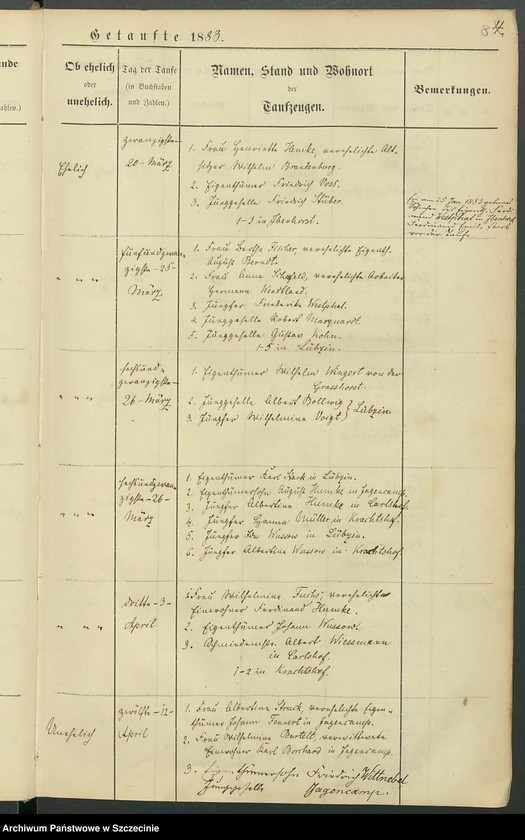 Getaufte 1883.
84.
Ob ehelich
oder
unehelich.
Tag der Taufe
(in Buchstaben
und Zahlen.)
Namen, Stand und Wohnort
der
Taufzeugen.
Bemerkungen.
Ehelich
zwanzigste
20 - März
1. Frau Henriette Hemke, verehelichte Alt-
sitzer Wilhelm Brandenburg.
2. Eigenthümer Friedrich Voss.
3. Junggeselle Friedrich Stüber.
1-3 in Ibenhorst.
Ein am 25 Jan 1883 geborner
" " "
fünfundzwan-
zigste - 25 -
März
1. Frau Bertha Fischer, verehelichte Eigenth.
August Berndt.
2. Frau Anna verehelichte Arbeiter
Hermann Wendtland.
3. Jungfer Friederike Westphal.
4. Junggeselle Robert Marquardt.
5. Junggeselle Gustav Kohn.
1-5 in Lübzin.
" " "
sechsund-
zwanzigste -
26 - März
1. Eigenthümer Wilhelm Wegort von der
Grasshorst.
2. Junggeselle Albert Bollwig
3. Jungfer Wilhelmine Voigt } Lübzin.
" " "
sechsundzwan-
zigste - 26 -
März
1. Eigenthümer Karl Stark in Lübzin.
2. Eigenthümersohn August Hemke in Hagencamp.
3. Jungfer Albertine Hemke in Carlshof.
4. Jungfer Hanna Müller in Krachtshof.
5. Jungfer Ida Wussow in Lübzin.
6. Jungfer Albertine Wussow in Krachtshof.
" " "
dritte - 3 -
April
1. Frau Wilhelmine Fuchs, verehelichte
Einwohner Ferdinand Hemke.
2. Eigenthümer Johann Wussow.
3. Albert Wiessmann
in Carlshof.
1-2 in Krachtshof.
Unehelich
zwölfte - 12 -
April
1. Frau Albertine Struck, verehelichte Eigen-
thümer Johann in Hagencamp.
2. Frau Wilhelmine Bartelt, verwittwete
Einwohner Karl Borchard in Hagencamp.
3. Eigenthümersohn Friedrich Wittnebel
Junggeselle Hagencamp.
Archiwum Państwowe w Szczecinie